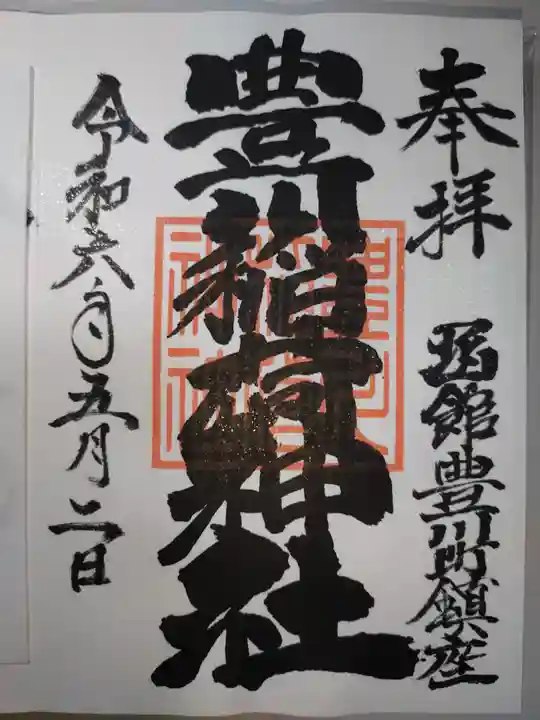 奉拝
函館豊川町鎮座
豊川稲荷神社
令和六年五月二日